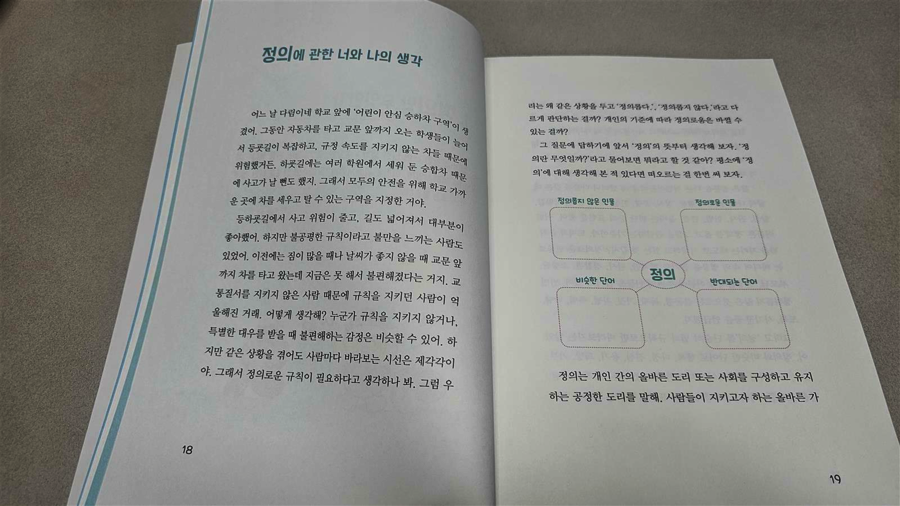 정의에 관한 너와 나의 생각
어느 날 다림이네 학교 앞에 '어린이 안심 승하차 구역'이 생
겼어. 그동안 자동차를 타고 교문 앞까지 오는 학생들이 늘어
서 등굣길이 복잡하고, 규정 속도를 지키지 않는 차들 때문에
위험했거든. 하굣길에는 여러 학원에서 세워 둔 승합차 때문
에 사고가 날 뻔도 했지. 그래서 모두의 안전을 위해 학교 가까
운 곳에 차를 세우고 탈 수 있는 구역을 지정한 거야.
등하굣길에서 사고 위험이 줄고, 길도 넓어져서 대부분이
좋아했어. 하지만 불공평한 규칙이라고 불만을 느끼는 사람도
있었어. 이전에는 짐이 많을 때나 날씨가 좋지 않을 때 교문 앞
까지 차를 타고 왔는데 지금은 못 해서 불편해졌다는 거지. 교
통질서를 지키지 않은 사람 때문에 규칙을 지키던 사람이 억
울해진 거래. 어떻게 생각해? 누군가 규칙을 지키지 않거나,
특별한 대우를 받을 때 불편해하는 감정은 비슷할 수 있어. 하
지만 같은 상황을 겪어도 사람마다 바라보는 시선은 제각각이
야. 그래서 정의로운 규칙이 필요하다고 생각하나 봐. 그럼 우
18
리는 왜 같은 상황을 두고 '정의롭다.', '정의롭지 않다.'라고 다
르게 판단하는 걸까? 개인의 기준에 따라 정의로움은 바뀔 수
있는 걸까?
그 질문에 답하기에 앞서 '정의'의 뜻부터 생각해 보자. '정
의란 무엇일까?'라고 물어보면 뭐라고 할 것 같아? 평소에 '정
의'에 대해 생각해 본 적 있다면 떠오르는 걸 한번 써 보자.
정의롭지 않은 인물
정의로운 인물
정의
비슷한 단어
반대되는 단어
정의는 개인 간의 올바른 도리 또는 사회를 구성하고 유지
하는 공정한 도리를 말해. 사람들이 지키고자 하는 올바른 가
19